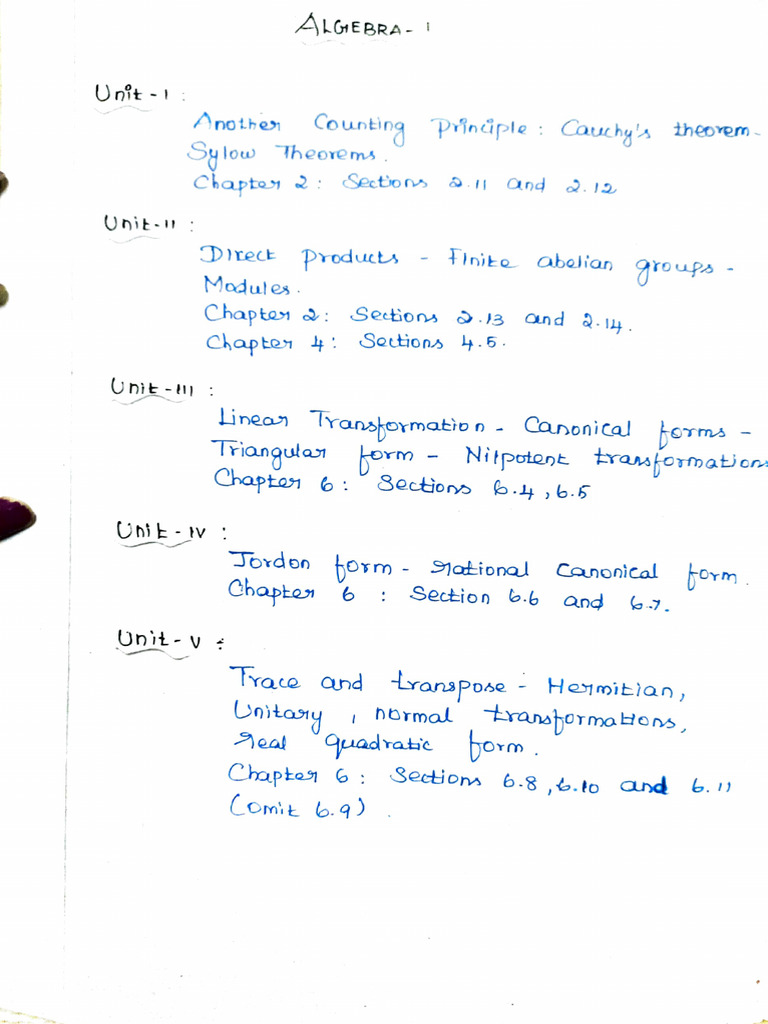 ALGEBRA - I
Unit - I :
Another Counting Principle : Cauchy's theorem -
Sylow Theorems.
Chapter 2 : Sections 2.11 and 2.12
Unit - II :
Direct products - Finite abelian groups -
Modules.
Chapter 2 : Sections 2.13 and 2.14.
Chapter 4 : Sections 4.5.
Unit - III :
Linear Transformation - Canonical forms -
Triangular form - Nilpotent transformations
Chapter 6 : Sections 6.4, 6.5
Unit - IV :
Jordon form - rational canonical form.
Chapter 6 : Section 6.6 and 6.7.
Unit - V :
Trace and transpose - Hermitian,
Unitary, normal transformations,
real quadratic form.
Chapter 6 : Sections 6.8, 6.10 and 6.11
(omit 6.9).